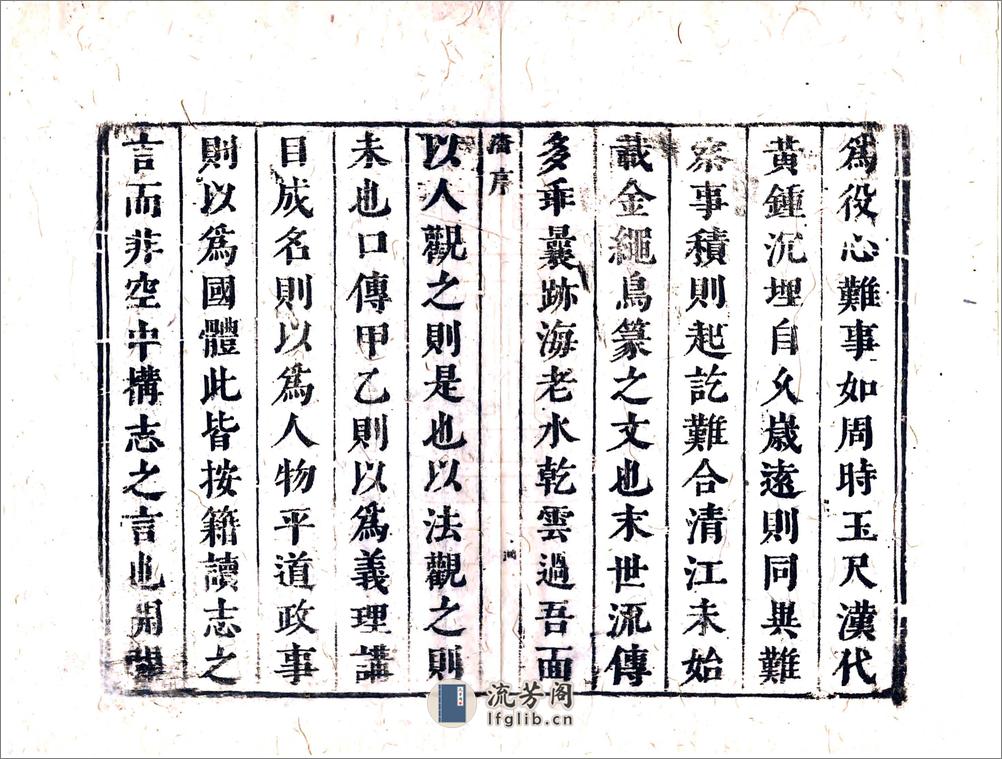 爲役心難事如周時玉尺漢代
黃鍾沉埋自久歲遠則同異難
察事積則起訖難合清江未始
識金繩鳥篆之文也末世流傳
多乖曩跡海老水乾雲過吾面
潘序
以人觀之則是也以法觀之則
未也口傳甲乙則以爲義理講
目成名則以爲人物平道政事
則以爲國體此皆按籍讀志之
言而非空中構志之言也開
流芳阁
lfglib.cn